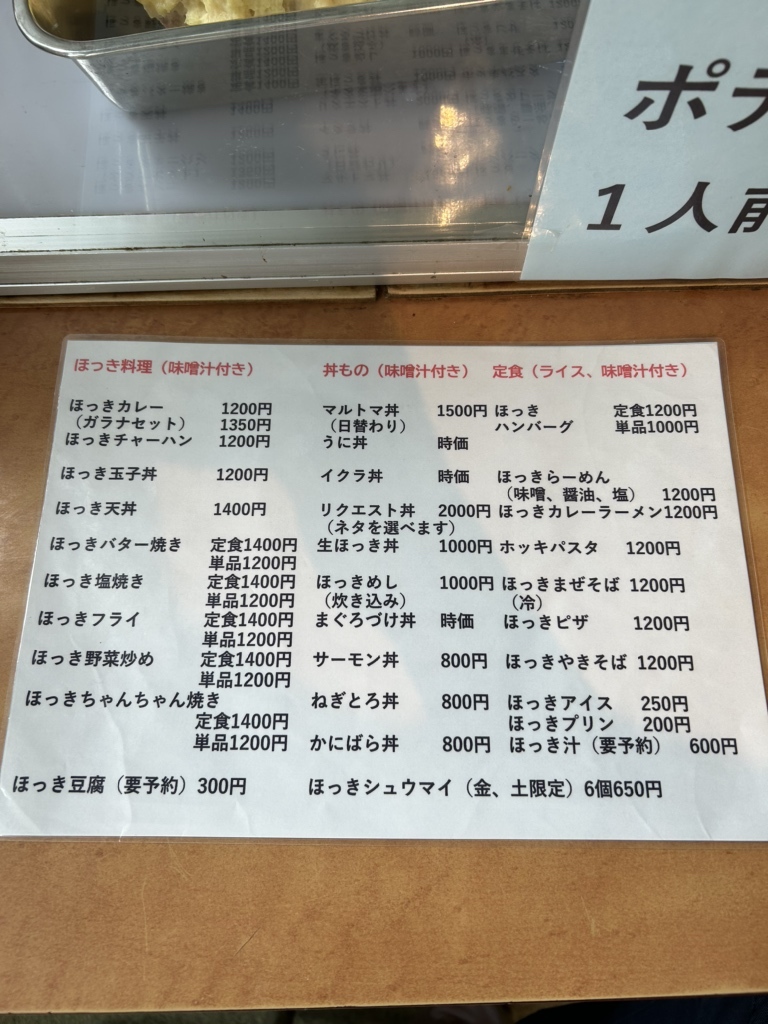 ポテ
1人前
ほっき料理（味噌汁付き）
ほっきカレー 1200円
（ガラナセット） 1350円
ほっきチャーハン 1200円
ほっき玉子丼 1200円
ほっき天丼 1400円
ほっきバター焼き 定食1400円
単品1200円
ほっき塩焼き 定食1400円
単品1200円
ほっきフライ 定食1400円
単品1200円
ほっき野菜炒め 定食1400円
単品1200円
ほっきちゃんちゃん焼き
定食1400円
単品1200円
ほっき豆腐（要予約）300円
丼もの（味噌汁付き）
マルトマ丼 1500円
（日替わり）
うに丼 時価
イクラ丼 時価
リクエスト丼 2000円
（ネタを選べます）
生ほっき丼 1000円
ほっきめし 1000円
（炊き込み）
まぐろづけ丼 時価
サーモン丼 800円
ねぎとろ丼 800円
かにばら丼 800円
ほっきシュウマイ（金、土限定）6個650円
定食（ライス、味噌汁付き）
ほっき 定食1200円
ハンバーグ 単品1000円
ほっきらーめん
（味噌、醤油、塩） 1200円
ほっきカレーラーメン1200円
ホッキパスタ 1200円
ほっきまぜそば 1200円
（冷）
ほっきピザ 1200円
ほっきやきそば 1200円
ほっきアイス 250円
ほっきプリン 200円
ほっき汁（要予約） 600円